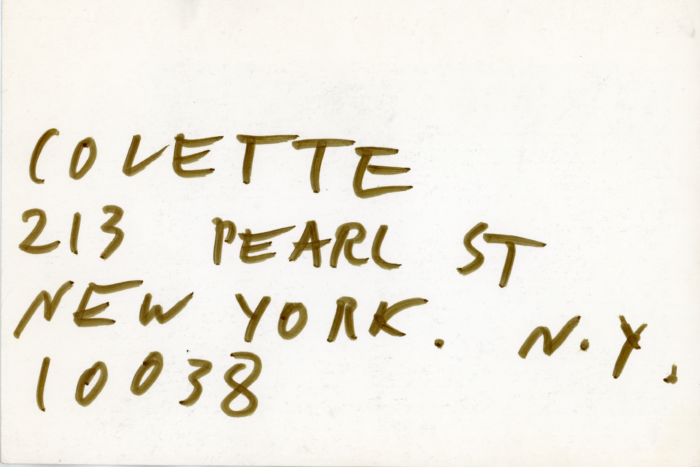 COLETTE
213 PEARL ST
NEW YORK. N.Y.
10038